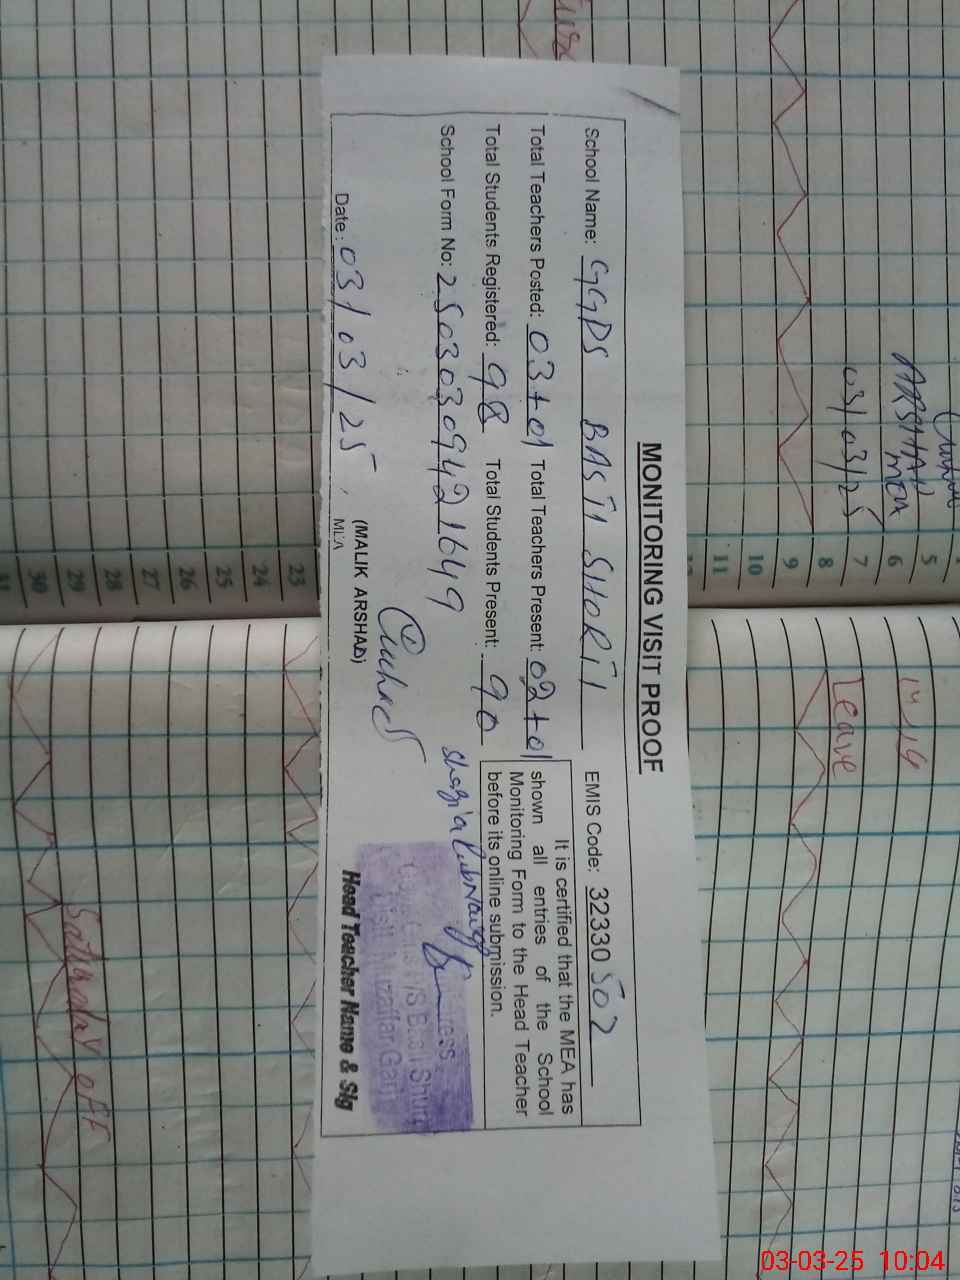 MONITORING VISIT PROOF
School Name: GGPS BASTI SHORII EMIS Code: 32330 502
Total Teachers Posted: 03+01 Total Teachers Present: 02+01
Total Students Registered: 98 Total Students Present: 90
School Form No: 25030309421649
It is certified that the MEA has
shown all entries of the School
Monitoring Form to the Head Teacher
before its online submission.
Date: 03/03/25
(MALIK ARSHAD)
MEA
Head Teacher Name & Sig
ARSHAD
MEA
03/03/25
5
6
7
8
9
10
11
12
23
24
25
26
27
28
29
30
31
Leave
Saturday off
03-03-25 10:04